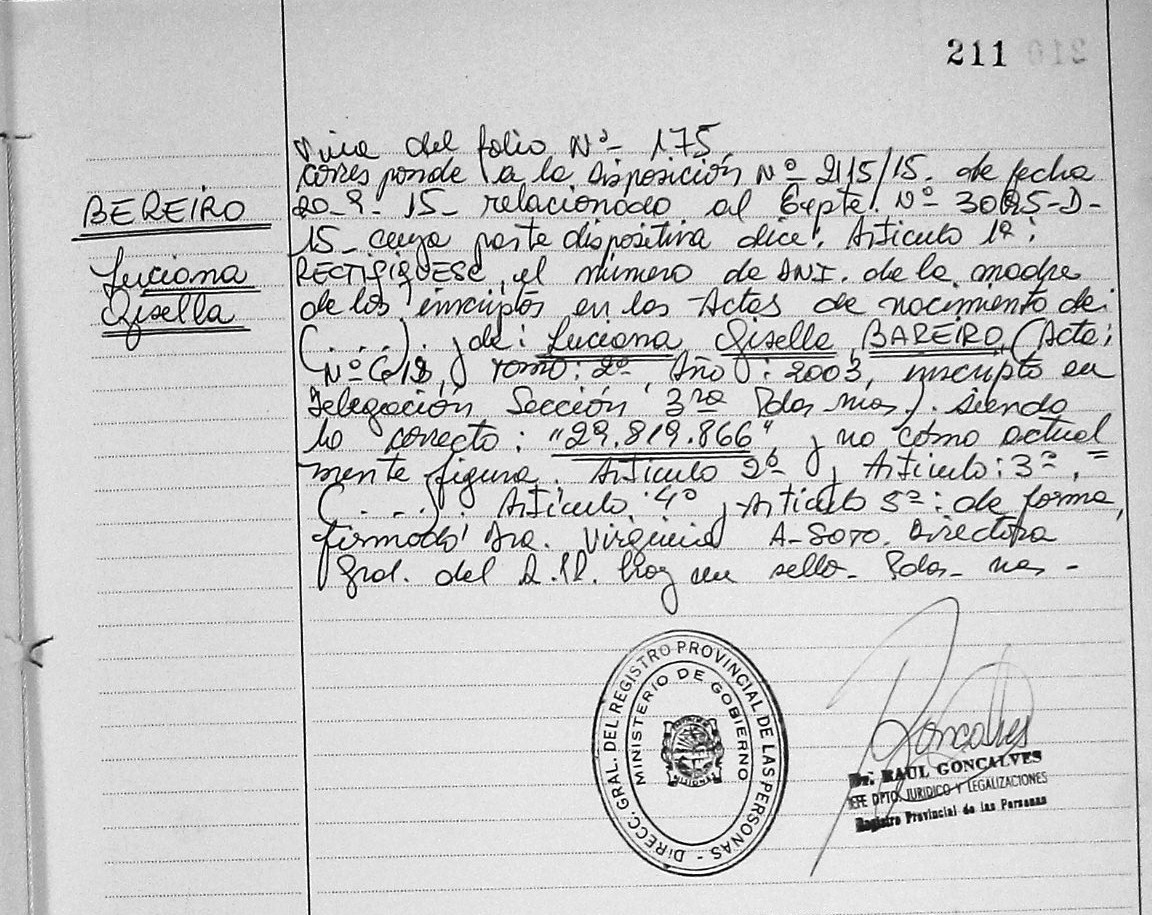 211
210
Viene del folio Nº- 175.
Corresponde a la Disposición Nº 2115/15. de fecha
BEREIRO
20-9-15- relacionado al Expte. Nº- 3025-D-
15- cuya parte dispositiva dice: Articulo 1º:
Luciana
RECTIFIQUESE, el número de DNI. de la madre
Gisella
de los inscriptos en las Actas de nacimiento de:
(.....). y de: Luciana Gisella BAREIRO (Acta:
Nº 618, Tomo: 2º, Año: 2003, inscripto en
Delegación Sección 3ra Pdas mnes). siendo
lo correcto: "29.819.866" y no como actual
mente figura. Articulo 2º y Articulo: 3º.=
(....). Articulo 4º y Articulo 5º: de forma,
firmado: Dra. Virginia A. SOTO. Directora
Gral. del R.P.P. hay un sello- Pdas- mes-
DIRECC. GRAL. DEL REGISTRO PROVINCIAL DE LAS PERSONAS -
MINISTERIO DE GOBIERNO
MISIONES
Goncalves
Dr. RAUL GONCALVES
JEFE DPTO. JURIDICO Y LEGALIZACIONES
Registro Provincial de las Personas